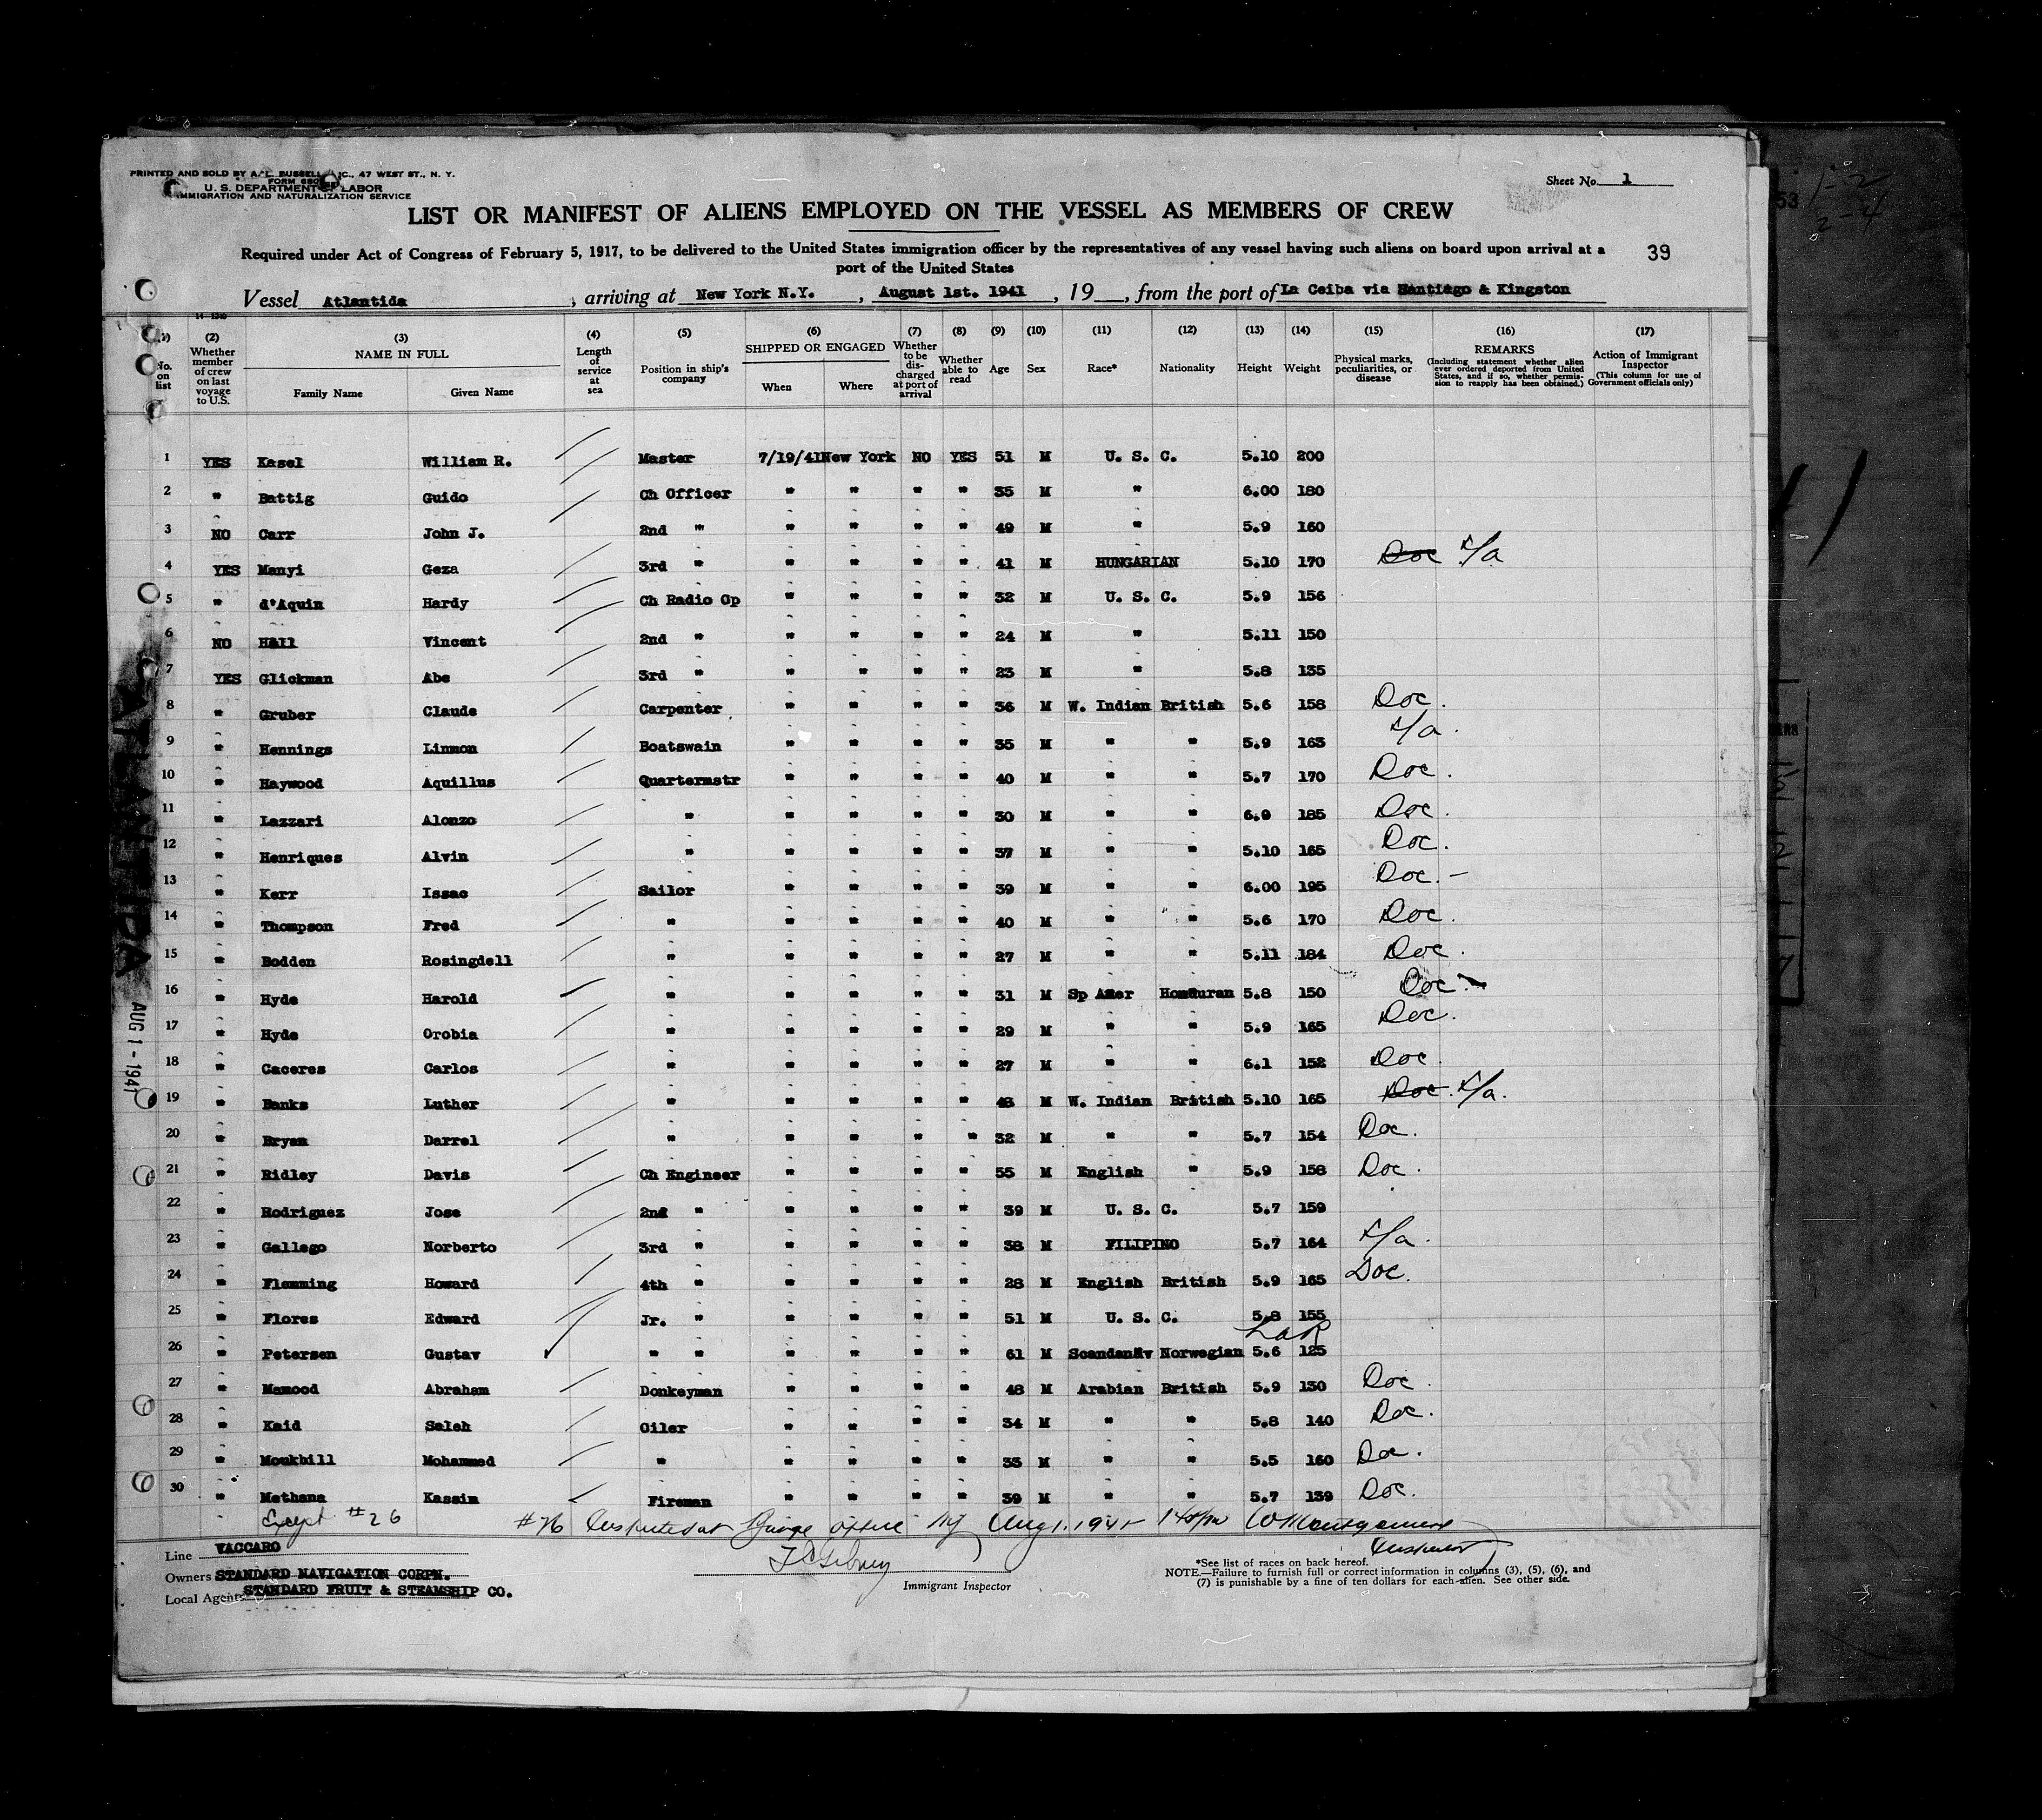 PRINTED AND SOLD BY A. L. BUSSELL, INC., 47 WEST ST., N. Y.
FORM 680
U. S. DEPARTMENT OF LABOR
IMMIGRATION AND NATURALIZATION SERVICE
Sheet No. 1
LIST OR MANIFEST OF ALIENS EMPLOYED ON THE VESSEL AS MEMBERS OF CREW
Required under Act of Congress of February 5, 1917, to be delivered to the United States immigration officer by the representatives of any vessel having such aliens on board upon arrival at a
port of the United States
39
Vessel Atlantida, arriving at New York N.Y., August 1st. 1941, 19__, from the port of La Ceiba via Santiago & Kingston
(2) (3) (4) (5) (6) (7) (8) (9) (10) (11) (12) (13) (14) (15) (16) (17)
No. on list
Whether member of crew on last voyage to U.S.
NAME IN FULL
Family Name Given Name
Length of service at sea
Position in ship's company
SHIPPED OR ENGAGED
When Where
Whether to be discharged at port of arrival
Whether able to read
Age Sex Race* Nationality Height Weight
Physical marks, peculiarities, or disease
REMARKS
(Including statement whether alien ever ordered deported from United States, and if so, whether permission to reapply has been obtained.)
Action of Immigrant Inspector
(This column for use of Government officials only)
1 YES Kasel William R. Master 7/19/41 New York NO YES 51 M U. S. C. 5.10 200
2 " Battig Guido Ch Officer " " " " 35 M " 6.00 180
3 NO Carr John J. 2nd " " " " " 49 M " 5.9 160
4 YES Manyi Geza 3rd " " " " " 41 M HUNGARIAN 5.10 170 Doc
5 " d'Aquin Hardy Ch Radio Op " " " " 32 M U. S. C. 5.9 156
6 NO Hall Vincent 2nd " " " " " 24 M " 5.11 150
7 YES Glickman Abe 3rd " " " " " 23 M " 5.8 135
8 " Gruber Claude Carpenter " " " " 36 M W. Indian British 5.6 158 Doc.
9 " Hennings Linmon Boatswain " " " " 35 M " " 5.9 163
10 " Haywood Aquillus Quartermstr " " " " 40 M " " 5.7 170 Doc.
11 " Lazzari Alonzo " " " " " 30 M " " 6.0 185 Doc.
12 " Henriques Alvin " " " " " 37 M " " 5.10 165 Doc.
13 " Kerr Issac Sailor " " " " 39 M " " 6.00 195 Doc. -
14 " Thompson Fred " " " " " 40 M " " 5.6 170 Doc.
15 " Bodden Rosingdell " " " " " 27 M " " 5.11 184 Doc.
16 " Hyde Harold " " " " " 31 M Sp Amer Honduran 5.8 150 Doc.
17 " Hyde Orobia " " " " " 29 M " " 5.9 165 Doc.
18 " Caceres Carlos " " " " " 27 M " " 6.1 152 Doc.
19 " Banks Luther " " " " " 48 M W. Indian British 5.10 165 Doc.
20 " Bryan Darrel " " " " " 32 M " " 5.7 154 Doc.
21 " Ridley Davis Ch Engineer " " " " 55 M English " 5.9 158 Doc.
22 " Rodriguez Jose 2nd " " " " " 39 M U. S. C. 5.7 159
23 " Gallego Norberto 3rd " " " " " 38 M FILIPINO 5.7 164
24 " Flemming Howard 4th " " " " " 28 M English British 5.9 165 Doc.
25 " Flores Edward Jr. " " " " " 51 M U. S. C. 5.8 155
26 " Petersen Gustav " " " " " " 61 M Scandanav Norwegian 5.6 125
27 " Mamood Abraham Donkeyman " " " " 48 M Arabian British 5.9 130 Doc.
28 " Kaid Saleh Oiler " " " " 34 M " " 5.8 140 Doc.
29 " Moukbill Mohammed " " " " " 35 M " " 5.5 160 Doc.
30 " Methana Kassim Fireman " " " " 39 M " " 5.7 139 Doc.
Except #26 #26 Inspected at Barge Office NY Aug 1, 1941 W Montgomery
Inspector
Line VACCARO
Owners STANDARD NAVIGATION CORPN.
Local Agents STANDARD FRUIT & STEAMSHIP CO.
Immigrant Inspector
*See list of races on back hereof.
NOTE.—Failure to furnish full or correct information in columns (3), (5), (6), and
(7) is punishable by a fine of ten dollars for each alien. See other side.
ATLANTIDA
AUG 1 - 1941
53
1-2
2-4